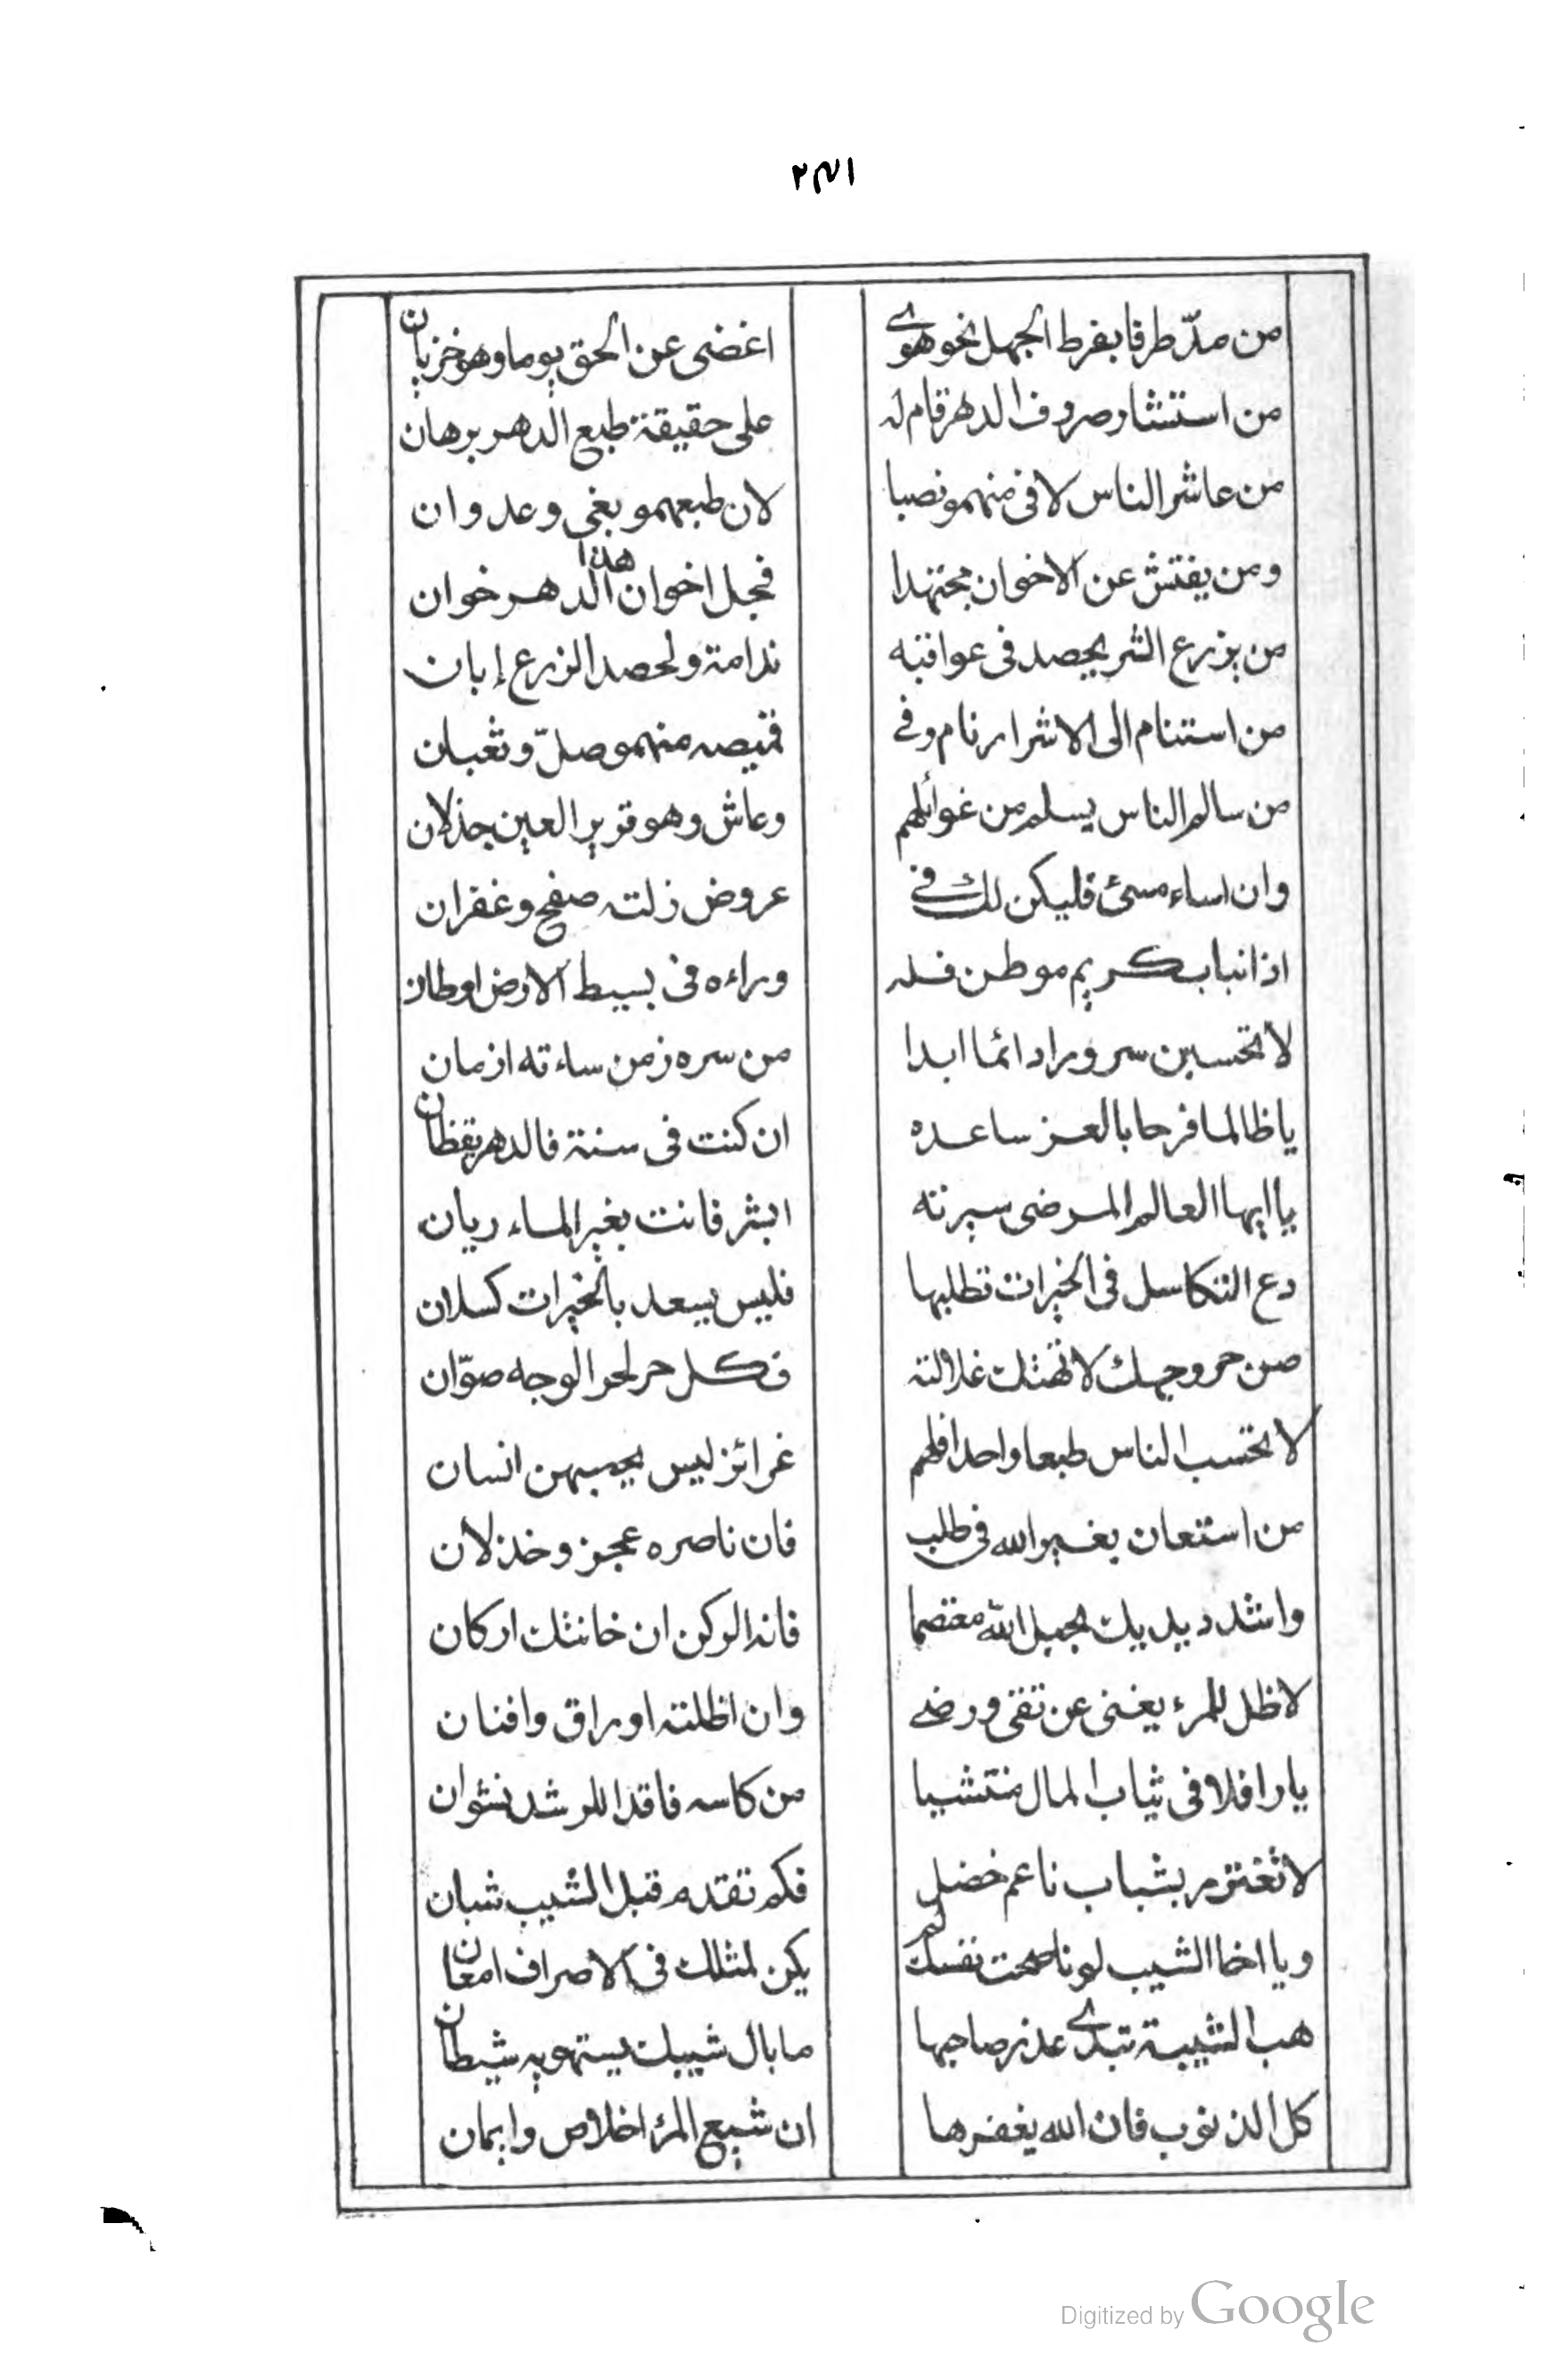 ٢٨١
من مدّ طرفا بفرط الجهل نحو هوى اغضى عن الحق يوما وهو خزيان
من استشار صروف الدهر قام له على حقيقة طبع الدهر برهان
من عاشر الناس لاقى منهمو نصبا لان طبعهمو بغى وعدوان
ومن يفتش عن الاخوان مجتهدا فجل اخوان هذا الدهر خوان
من يزرع الشر يحصد فى عواقبه ندامة ولحصد الزرع إبان
من استنام الى الاشرار نام وفى قميصه منهمو صلّ وثعبان
من سالم الناس يسلم من غوائلهم وعاش وهو قرير العين جذلان
وان اساء مسئ فليكن لك فى عروض زلته صفح وغفران
اذا نبا بكريم موطن فله وراءه فى بسيط الارض اوطان
لا تحسبن سرورا دائما ابدا من سره زمن ساءته ازمان
يا ظالما فرحا بالعز ساعده ان كنت فى سنة فالدهر يقظان
يا ايها العالم المرضى سيرته ابشر فانت بغير الماء ريان
دع التكاسل فى الخيرات تطلبها فليس يسعد بالخيرات كسلان
صن حر وجهك لا تهتك غلالته فكل حر لحر الوجه صوّان
لا تحسب الناس طبعا واحدا فلهم غرائز ليس يحصيهن انسان
من استعان بغير الله فى طلب فان ناصره عجز وخذلان
واشدد يديك بحبل الله معتصما فانه الركن ان خانتك اركان
لا ظل للمرء يغنى عن تقى ورضى وان اظلته اوراق وافنان
يا رافلا فى ثياب المال منتشيا من كاسه فاقد اللرشد نشوان
لا تغترر بشباب ناعم خضل فكم تقدم قبل الشيب شبان
ويا اخا الشيب لو ناصحت نفسك لم يكن لمثلك فى الاصراف امعان
هب الشبيبة تبدى عذر صاحبها ما بال شيبك يستهويه شيطان
كل الذنوب فان الله يغفرها ان شيع المرء اخلاص وايمان
Digitized by Google